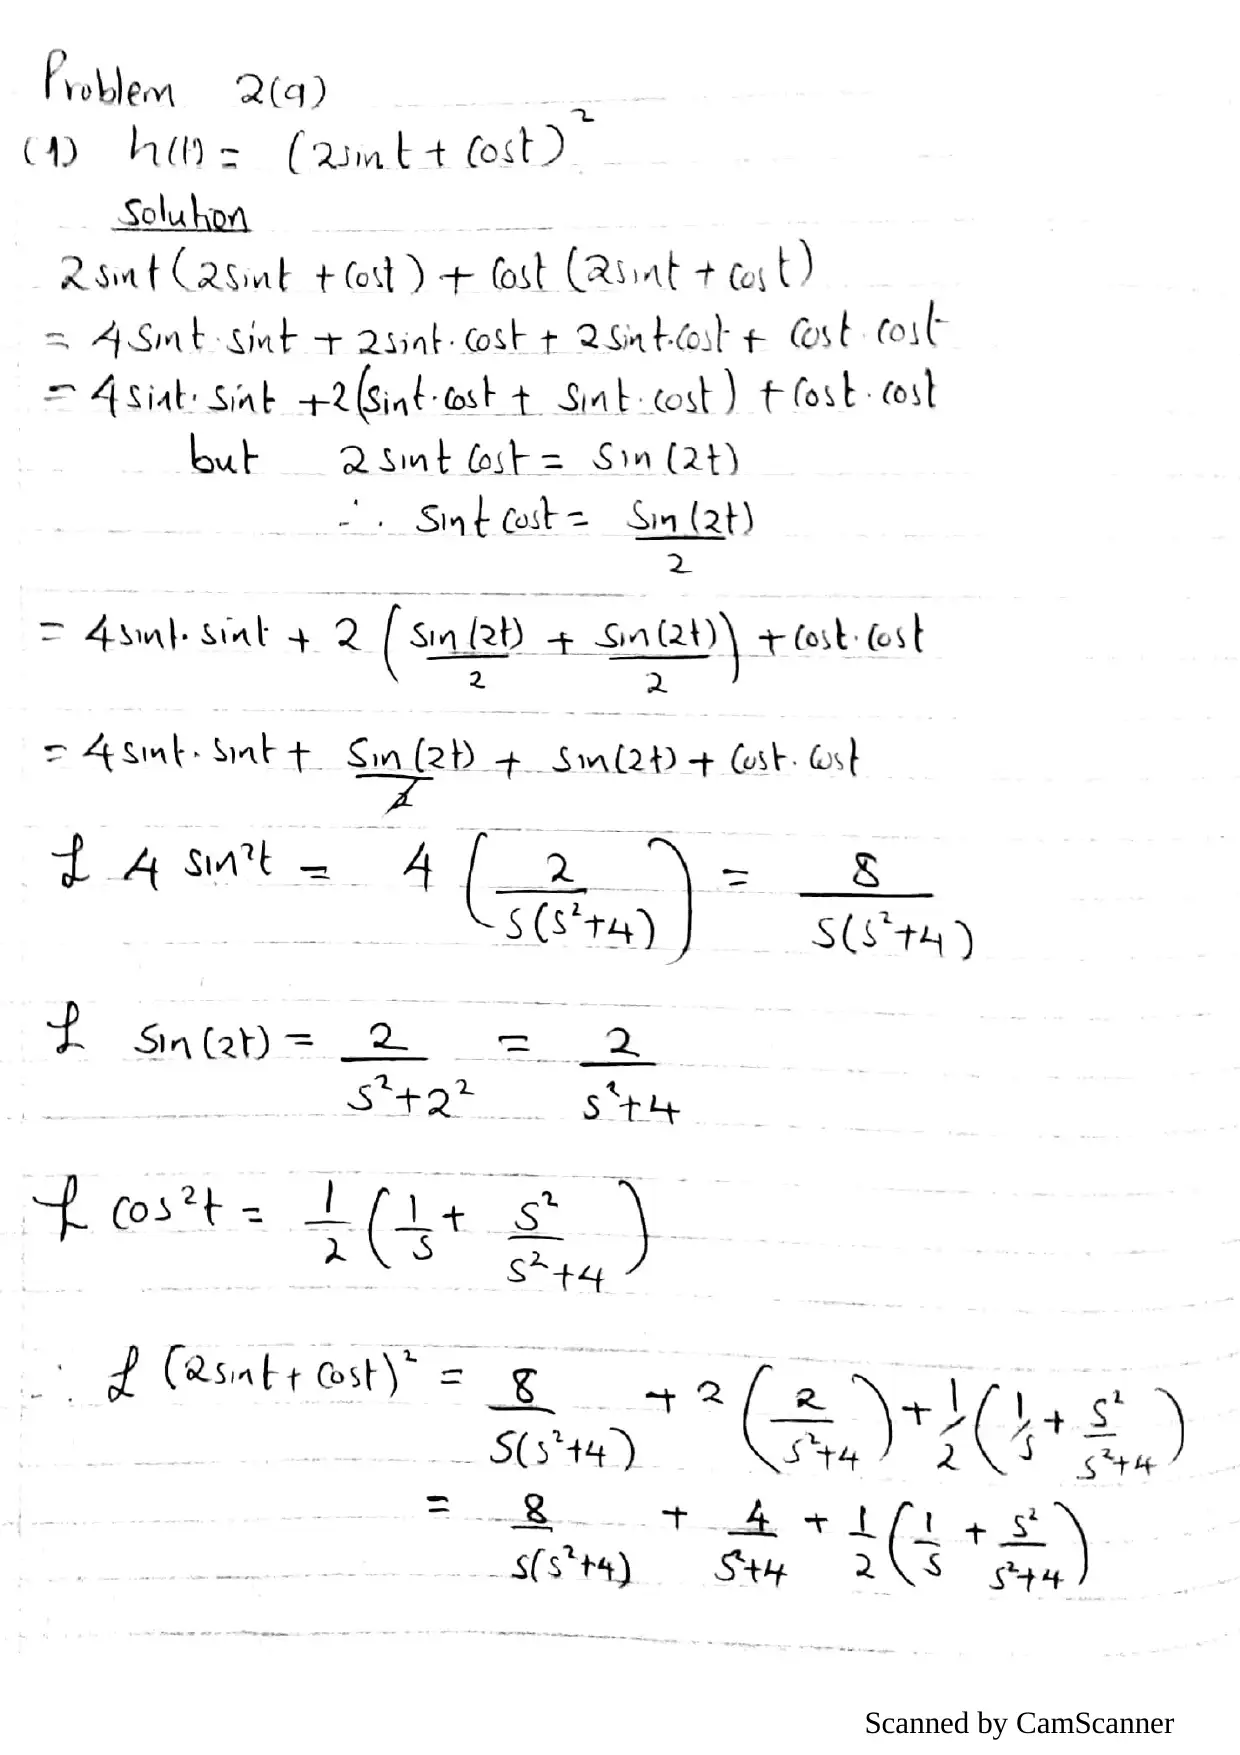 Problem 2(a)
(1) h(t) = (2sint + cost)²
Solution
2sint(2sint + cost) + cost(2sint + cost)
= 4sint·sint + 2sint·cost + 2sint·cost + cost·cost
= 4sint·sint + 2(sint·cost + sint·cost) + cost·cost
but 2sint cost = sin(2t)
∴ sint cost = sin(2t)/2
= 4sint·sint + 2(sin(2t)/2 + sin(2t)/2) + cost·cost
= 4sint·sint + sin(2t) + sin(2t) + cost·cost
ℒ 4 sin²t = 4(2/(s(s²+4))) = 8/(s(s²+4))
ℒ sin(2t) = 2/(s²+2²) = 2/(s²+4)
ℒ cos²t = 1/2(1/s + s²/(s²+4))
∴ ℒ (2sint + cost)² = 8/(s(s²+4)) + 2(2/(s²+4)) + 1/2(1/s + s²/(s²+4))
= 8/(s(s²+4)) + 4/(s²+4) + 1/2(1/s + s²/(s²+4))
Scanned by CamScanner